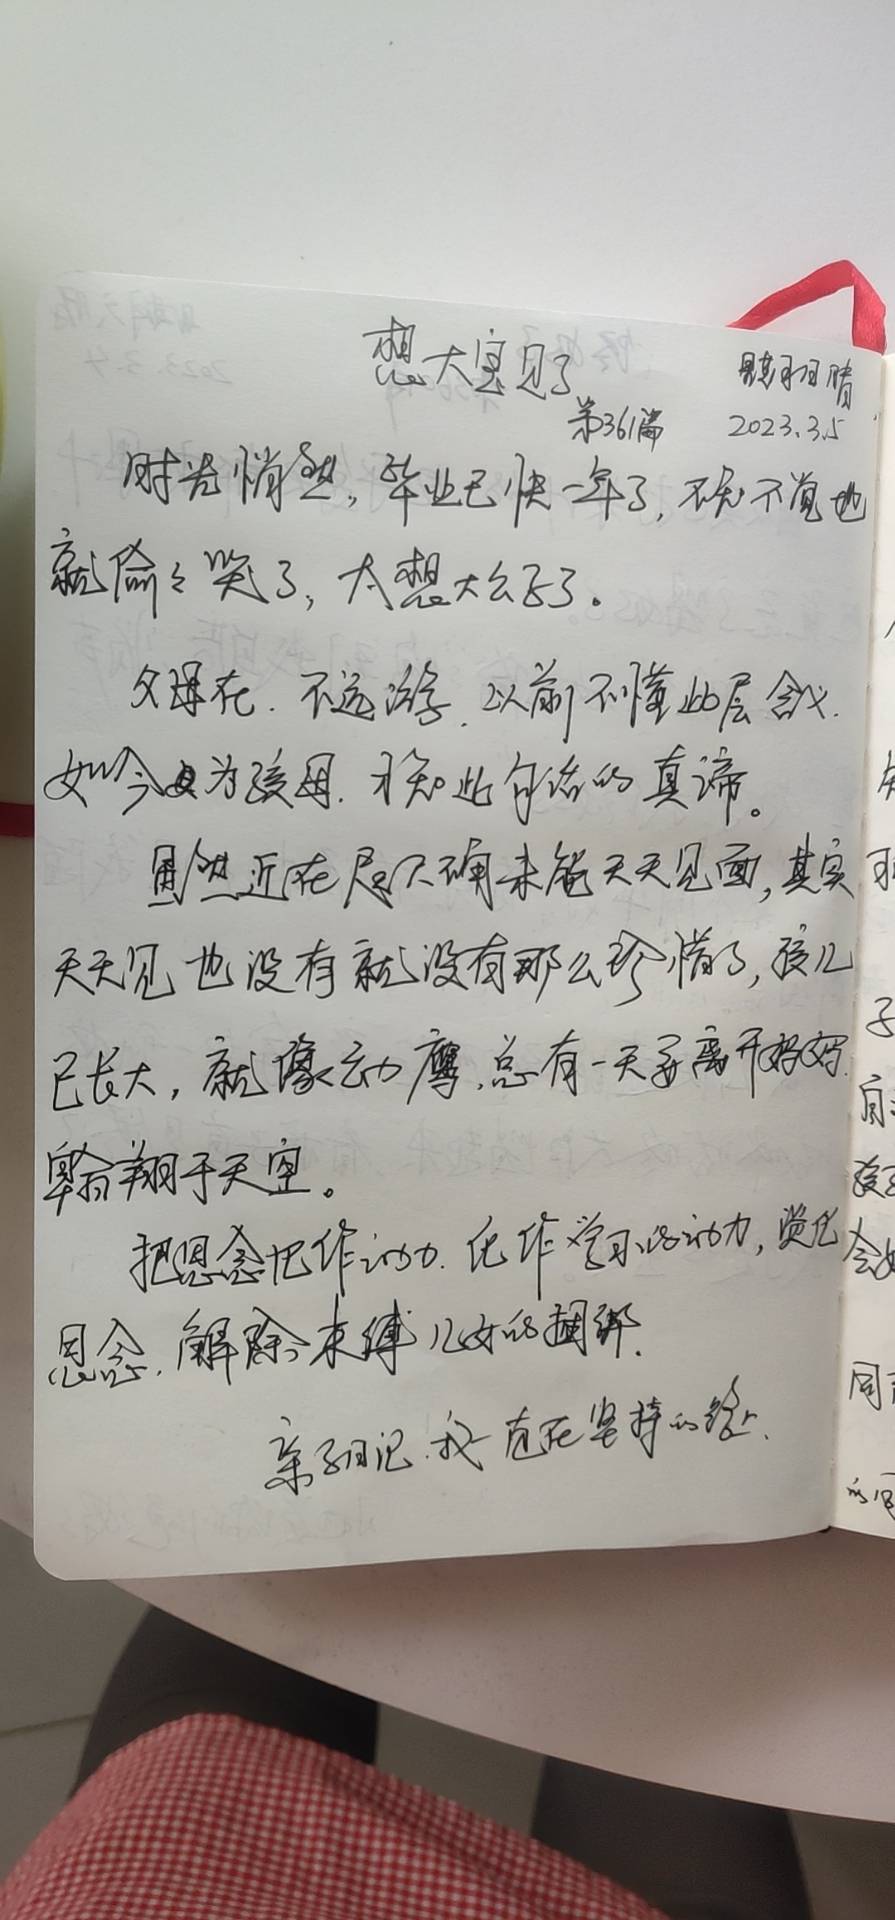 想大宝贝了
星期日 晴
第361篇
2023.3.5
时光悄然，毕业已快一年了，不知不觉地
就偷々哭了，太想大公子了。
父母在．不远游．以前不懂此层含义．
如今为孩母．才知此句话的真谛。
虽然近在咫尺不确未能天天见面，其实
天天见也没有就没有那么珍惜了，孩儿
已长大，就像幼鹰．总有一天要离开妈妈．
翱翔于天空。
把思念化作动力．化作学习的动力，
思念．解除束缚儿女的捆绑．
亲子日记．我一直在坚持的路上．